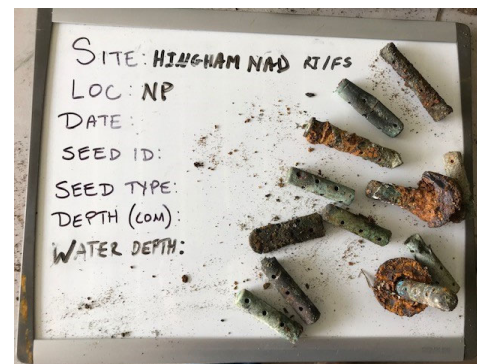 SITE: HINGHAM NAD RI/FS
LOC: NP
DATE:
SEED ID:
SEED TYPE:
DEPTH (COM):
WATER DEPTH: